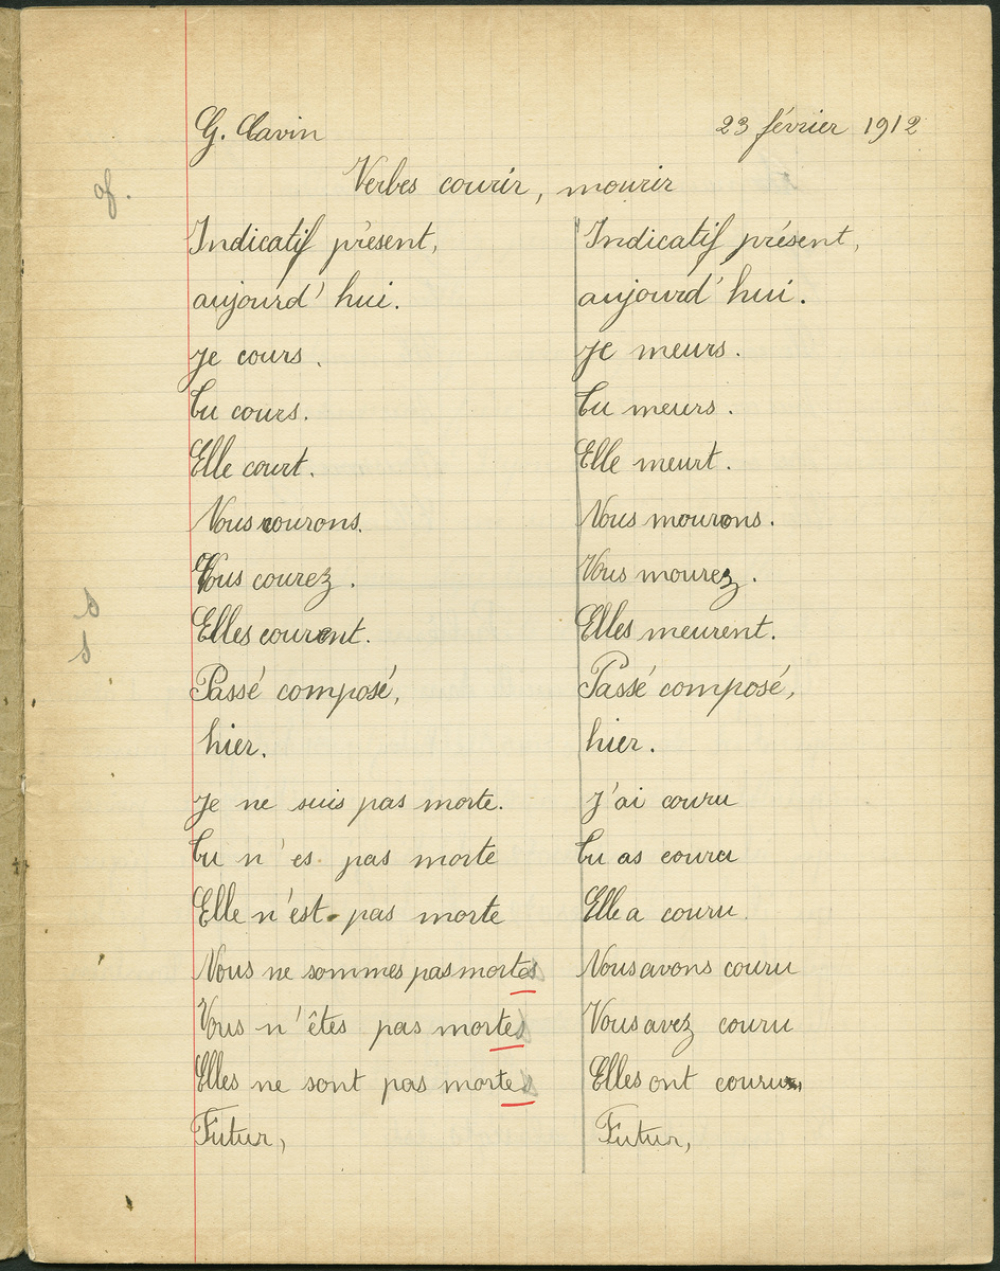 G. Cavin
23 février 1912
Verbes courir, mourir
Indicatif présent,
aujourd'hui.
Je cours.
Tu cours.
Elle court.
Nous courons.
Vous courez.
Elles courent.
Passé composé,
hier.
Je ne suis pas morte.
Tu n'es pas morte
Elle n'est pas morte
Nous ne sommes pas mortes
Vous n'êtes pas mortes
Elles ne sont pas mortes
Futur,
Indicatif présent,
aujourd'hui.
Je meurs.
Tu meurs.
Elle meurt.
Nous mourons.
Vous mourez.
Elles meurent.
Passé composé,
hier.
J'ai couru
Tu as couru
Elle a couru.
Nous avons couru
Vous avez couru
Elles ont couru
Futur,
s
s